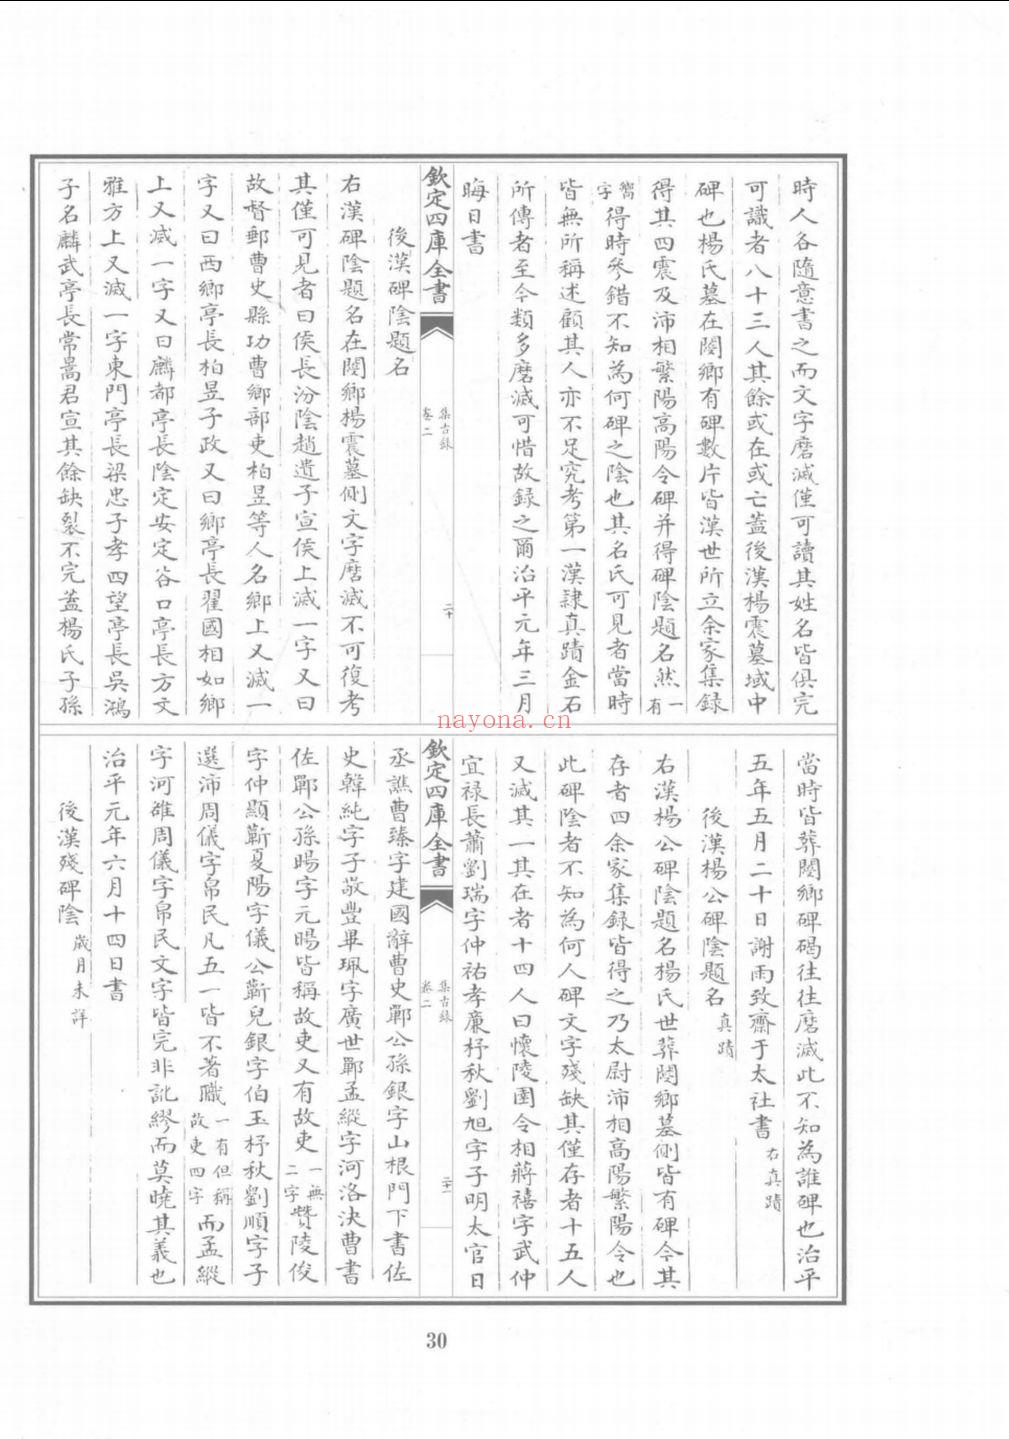 時人各隨意書之而文字磨滅僅可讀其姓名皆俱完
可識者八十三人其餘或在或亡蓋後漢楊震墓域中
碑也楊氏墓在閿鄉有碑數片皆漢世所立余家集録
得其四震及沛相繁陽高陽令碑并得碑陰題名然一有
嚮字得時參錯不知為何碑之陰也其名氏可見者當時
皆無所稱述顧其人亦不足究考第一漢隸真蹟金石
所傳者至今類多磨滅可惜故録之爾治平元年三月
晦日書
欽定四庫全書
集古録
卷二
二十
後漢碑陰題名
右漢碑陰題名在閿鄉楊震墓側文字磨滅不可復考
其僅可見者曰侯長汾陰趙遺子宣侯上滅一字又曰
故督郵曹史縣功曹鄉部吏柏昱等人名鄉上又滅一
字又曰西鄉亭長柏昱子政又曰鄉亭長翟國相如鄉
上又滅一字又曰麟都亭長陰定安定谷口亭長方文
雅方上又滅一字東門亭長梁忠子孝四望亭長吳鴻
子名麟武亭長常暠君宣其餘缺裂不完蓋楊氏子孫
當時皆葬閿鄉碑碣往往磨滅此不知為誰碑也治平
五年五月二十日謝雨致齋于太社書右真蹟
後漢楊公碑陰題名真蹟
右漢楊公碑陰題名楊氏世葬閿鄉墓側皆有碑今其
存者四余家集録皆得之乃太尉沛相高陽繁陽令也
此碑陰者不知為何人碑文字殘缺其僅存者十五人
又滅其一其在者十四人曰懷陵圉令相蔣禧字武仲
宜禄長蕭劉瑞字仲祐孝廉杼秋劉旭字子明太官日
欽定四庫全書
集古録
卷二
二十一
丞譙曹臻字建國辭曹史鄲公孫銀字山根門下書佐
史韓純字子敬豐畢珮字廣世鄲孟縱字河洛決曹書
佐鄲公孫暘字元暘皆稱故吏又有故吏一無二字贊陵俊
字仲顯蘄夏陽字儀公蘄兒銀字伯玉杼秋劉順字子
選沛周儀字帛民凡五一皆不著職一有但稱故吏四字而孟縱
字河雒周儀字帛民文字皆完非訛繆而莫曉其義也
治平元年六月十四日書
後漢殘碑陰歲月未詳
30
nayona.cn